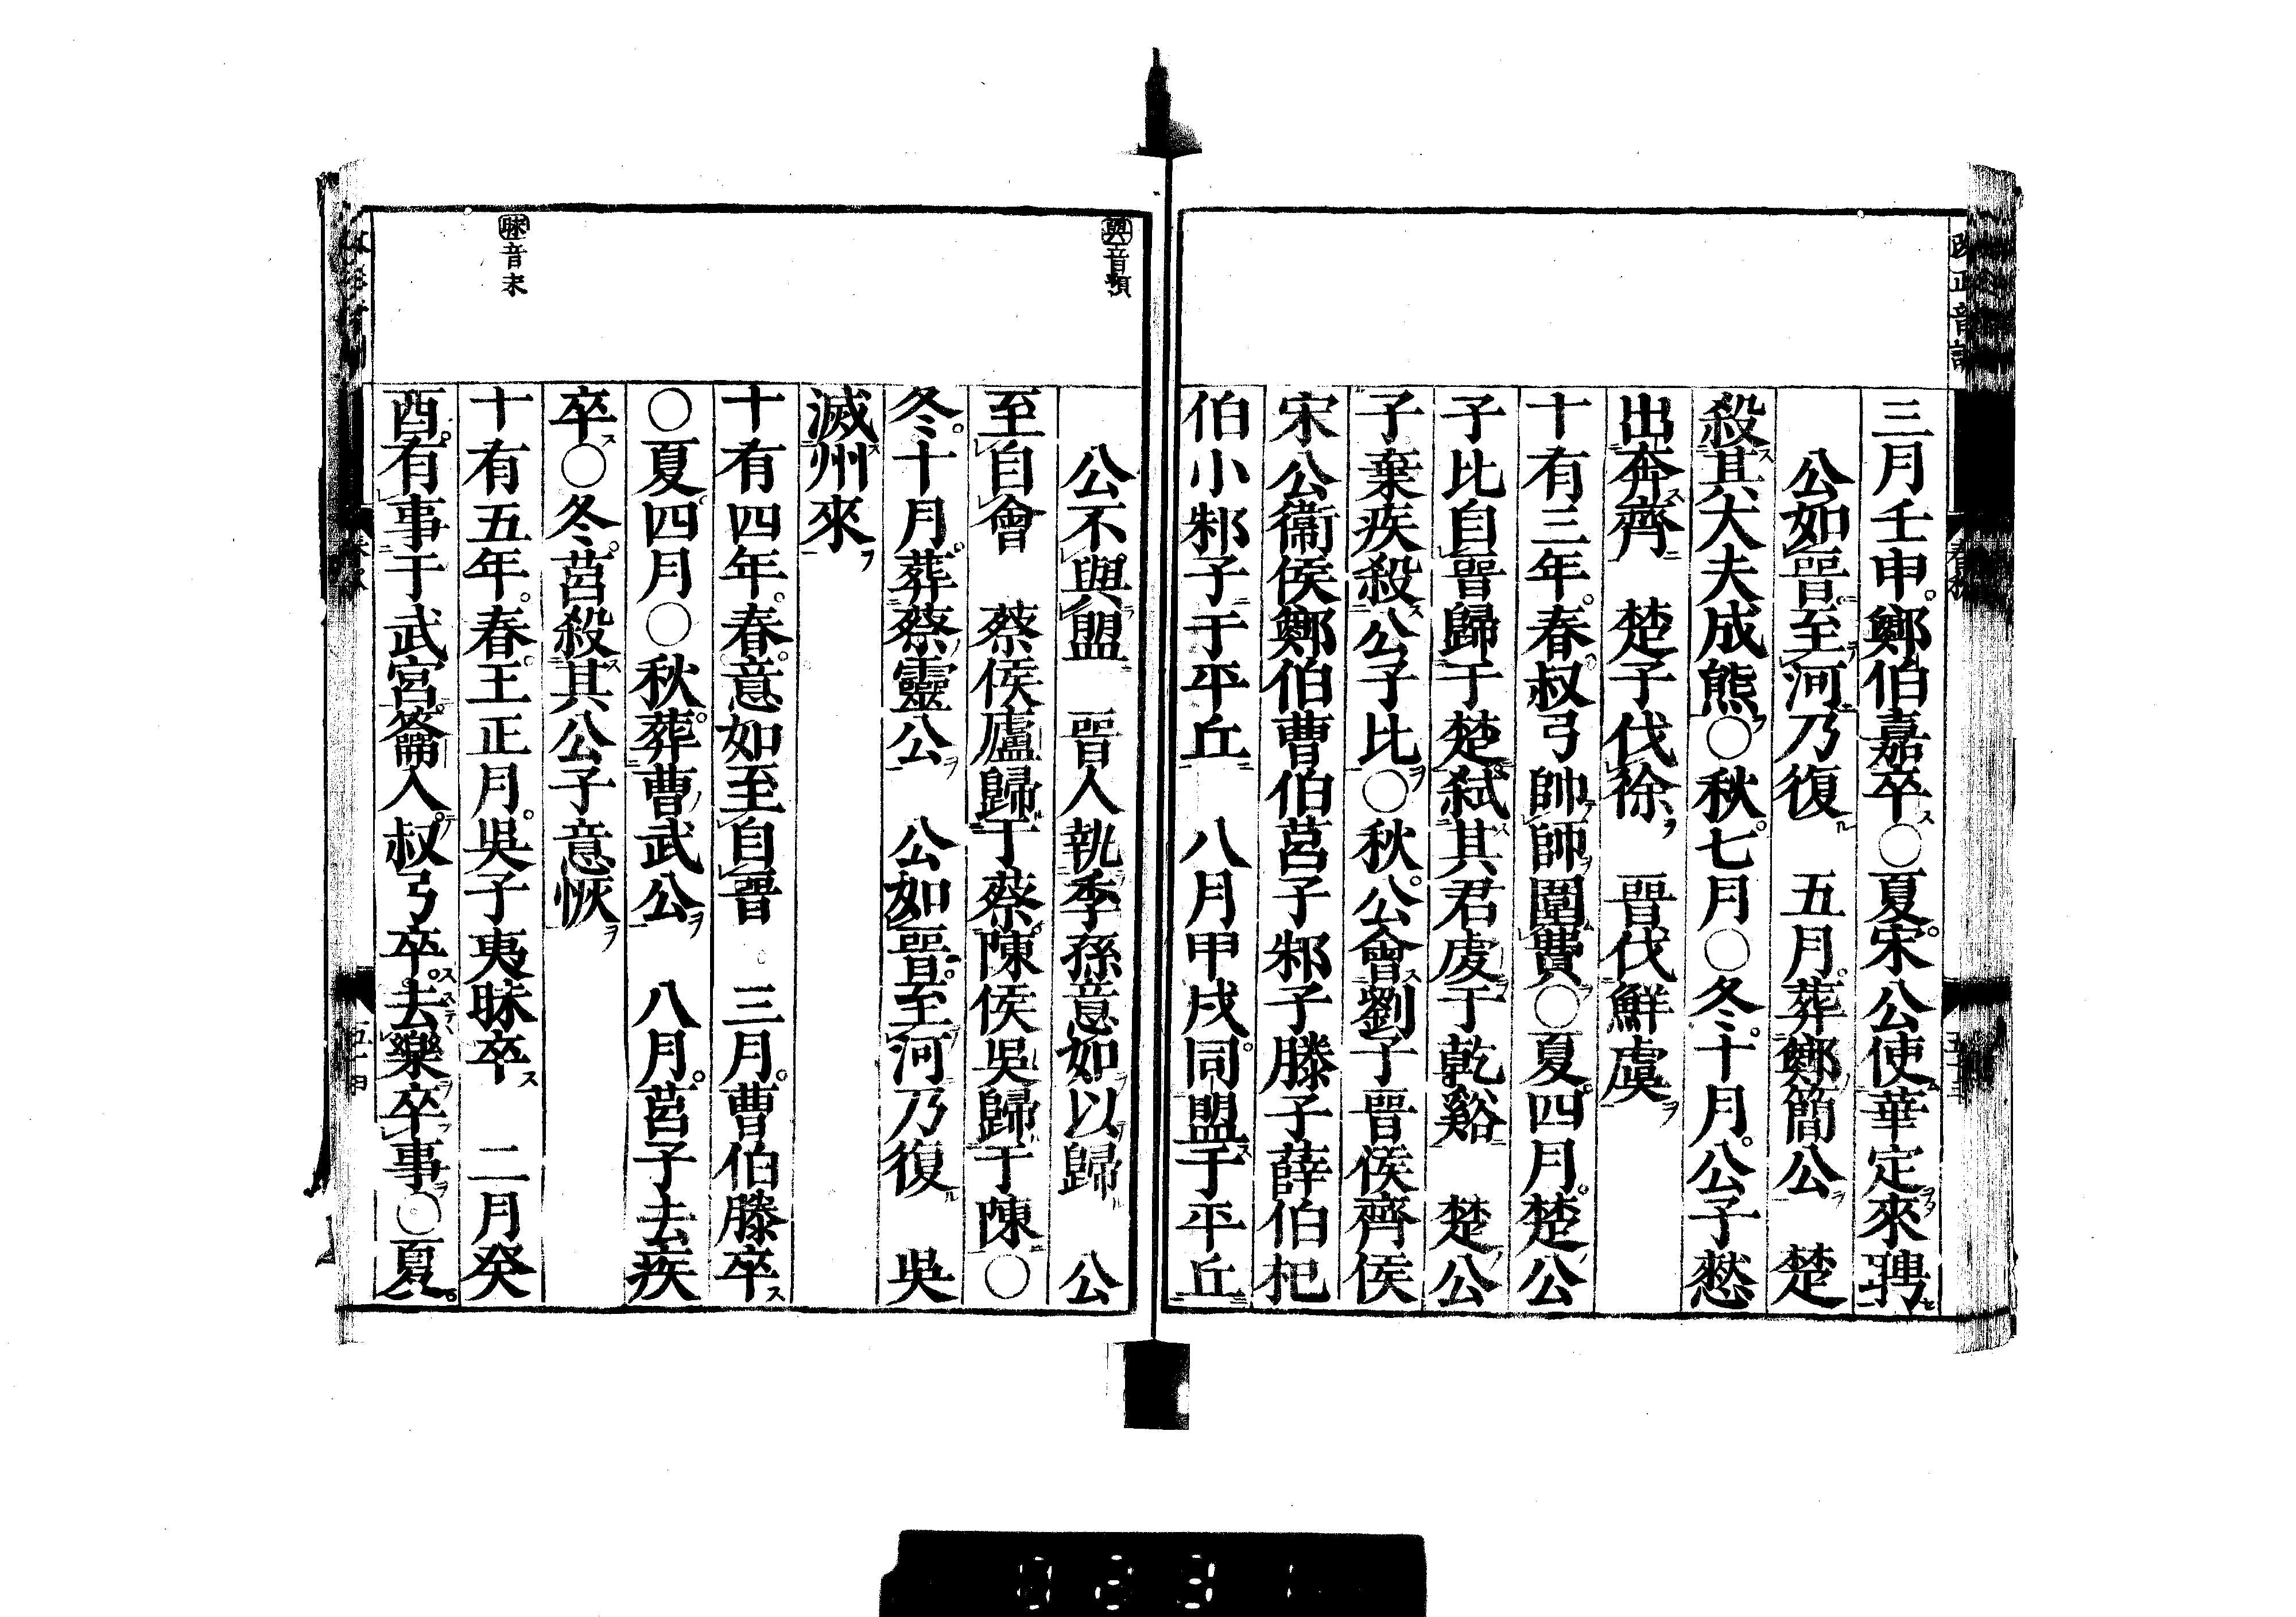 三月壬申鄭伯嘉卒〇夏宋公使華定來聘
公如晉至河乃復　五月葬鄭簡公　楚
殺其大夫成熊〇秋七月〇冬十月公子憖
出奔齊　楚子伐徐　晉伐鮮虞
十有三年春叔弓帥師圍費〇夏四月楚公
子比自晉歸于楚弑其君虔于乾谿　楚公
子棄疾殺公子比〇秋公會劉子晉侯齊侯
宋公衞侯鄭伯曹伯莒子邾子滕子薛伯杞
伯小邾子于平丘　八月甲戌同盟于平丘
與音預
公不與盟　晉人執季孫意如以歸　公
至自會　蔡侯廬歸于蔡陳侯吳歸于陳〇
冬十月葬蔡靈公　公如晉至河乃復　吳
滅州來
十有四年春意如至自晉　三月曹伯滕卒
〇夏四月〇秋葬曹武公　八月莒子去疾
卒〇冬莒殺其公子意恢
眛音末
十有五年春王正月吳子夷眛卒　二月癸
酉有事于武宮籥入叔弓卒去樂卒事〇夏